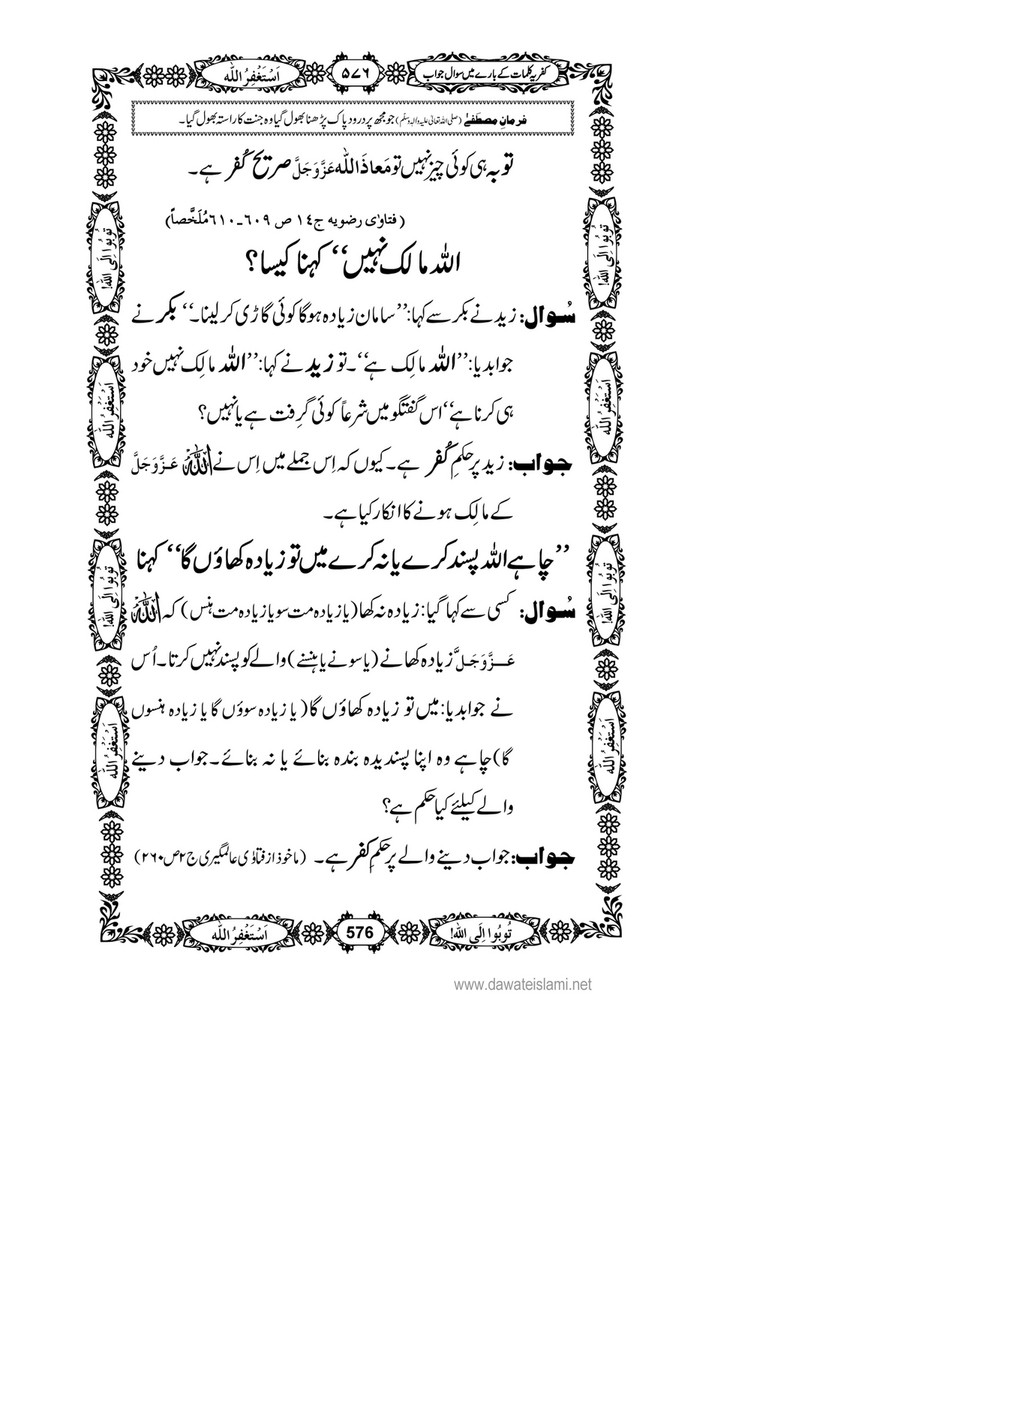 کفریہ کلمات کے بارے میں سوال جواب
۵۷۶
اَسْتَغْفِرُ اللّٰه
فرمانِ مصطفےٰ (صلی اللہ تعالیٰ علیہ والہ وسلّم) جو مجھ پر درود پاک پڑھنا بھول گیا وہ جنت کا راستہ بھول گیا۔
توبہ ہی کوئی چیز نہیں تو مَعاذَ اللّٰه عَزَّوَجَلَّ صریح کُفر ہے۔
(فتاوٰی رضویه ج١٤ ص ٦٠٩۔٦١٠ مُلَخَّصاً)
اللہ مالک نہیں‘‘ کہنا کیسا؟
سُوال: زید نے بکر سے کہا: ’’سامان زیادہ ہو گا کوئی گاڑی کر لینا۔‘‘ بکر نے
جواب دیا: ’’اللہ مالِک ہے‘‘۔ تو زید نے کہا: ’’اللہ مالِک نہیں خود
ہی کرنا ہے‘‘ اس گفتگو میں شرعاً کوئی گرِفت ہے یا نہیں؟
جواب: زید پر حکمِ کُفر ہے۔ کیوں کہ اِس جملے میں اِس نے اللہ عَزَّوَجَلَّ
کے مالِک ہونے کا انکار کیا ہے۔
’’چاہے اللہ پسند کرے یا نہ کرے میں تو زیادہ کھاؤں گا‘‘ کہنا
سُوال: کسی سے کہا گیا: زیادہ نہ کھا (یا زیادہ مت سو یا زیادہ مت ہنس) کہ اللہ
عَزَّوَجَلَّ زیادہ کھانے (یا سونے یا ہنسنے) والے کو پسند نہیں کرتا۔ اُس
نے جواب دیا: میں تو زیادہ کھاؤں گا (یا زیادہ سوؤں گا یا زیادہ ہنسوں
گا) چاہے وہ اپنا پسندیدہ بندہ بنائے یا نہ بنائے۔ جواب دینے
والے کیلئے کیا حکم ہے؟
جواب: جواب دینے والے پر حکمِ کفر ہے۔ (ماخوذ از فتاوٰی عالمگیری ج۲ص۲۶۰)
تُوبُوا اِلَی اللّٰه!
اَسْتَغْفِرُ اللّٰه
تُوبُوا اِلَی اللّٰه!
اَسْتَغْفِرُ اللّٰه
تُوبُوا اِلَی اللّٰه!
اَسْتَغْفِرُ اللّٰه
تُوبُوا اِلَی اللّٰه!
اَسْتَغْفِرُ اللّٰه
تُوبُوا اِلَی اللّٰه!
576
اَسْتَغْفِرُ اللّٰه
www.dawateislami.net